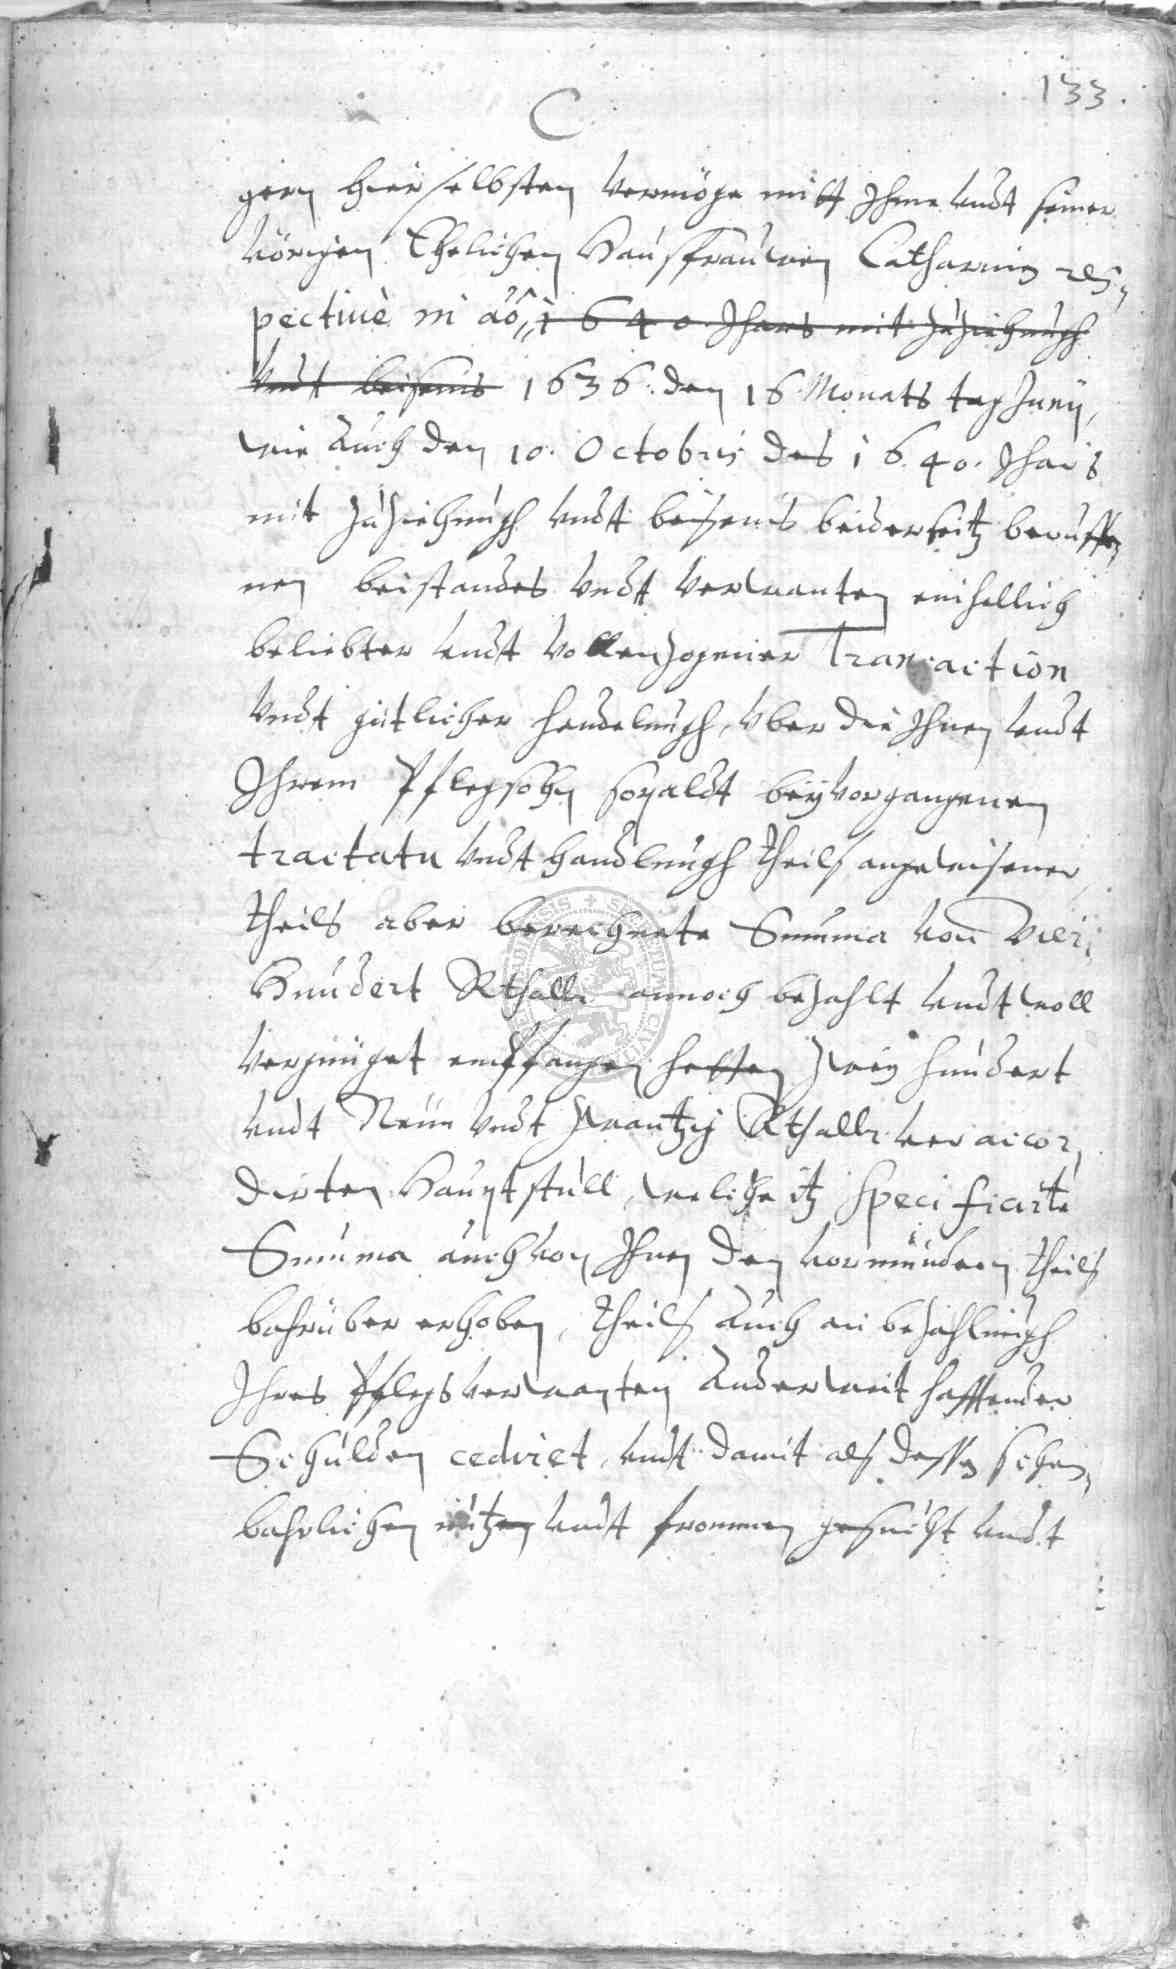 133.
C
gern hierselbsten vermöge mitt Ihme undt seiner
vörigen Ehelichen Haussfrauwen Catharin res¬
pectivè in aō 1640 Jhars mit zuziehungh
undt beisenns 1636. den 16 Monats tag Junÿ,
wie auch den 10. Octobris des 1640. Jhars
mit zuziehungh undt beisenns beiderseitz beruffe¬
nen beistandes undt verwanten einhellich
beliebter undt vollenzogener Transaction
undt gütlicher handelungh, uber die Ihnen undt
Ihrem Pflegsohn sopaldt beÿ vorgangenen
tractatu undt handlungh theils angewisener,
theils aber berechnete Summa von vier¬
hundert Rthallr annoch bezahlt undt woll
vergnüget empfangen hetten zweÿ hundert
undt Neun undt zwantzig Rthallr veraccor¬
dirten Hauptstull, weliche itz specificirte
Summa auch von Ihnen den vormündern theils
bahrüber erhoben, theils auch an bezahlungh
Ihres Pflegsverwanten anderweit hafftender
Schulden cediret, undt damit als dessen schein¬
bahrlichen nützen undt frommen gesucht undt